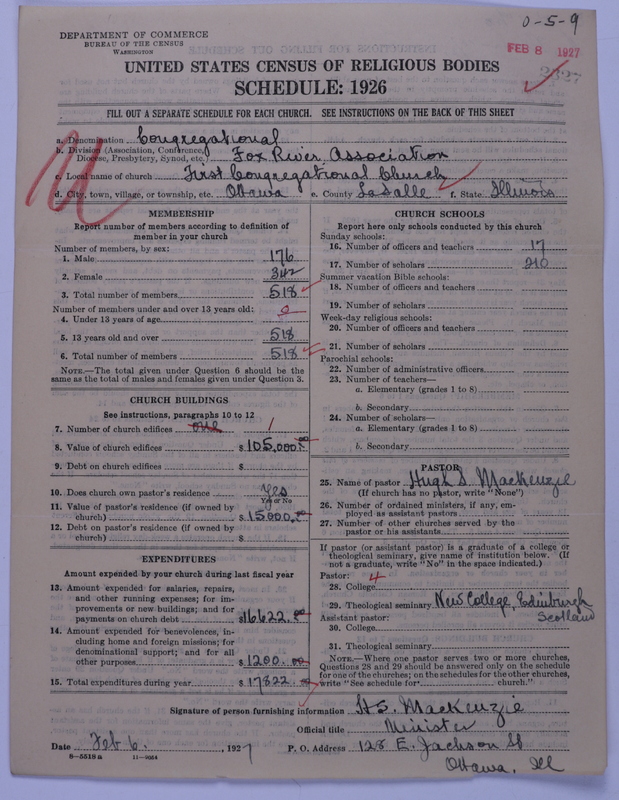 0-5-9
DEPARTMENT OF COMMERCE
BUREAU OF THE CENSUS
WASHINGTON
FEB 8 1927
UNITED STATES CENSUS OF RELIGIOUS BODIES
SCHEDULE: 1926
FILL OUT A SEPARATE SCHEDULE FOR EACH CHURCH. SEE INSTRUCTIONS ON THE BACK OF THIS SHEET
a. Denomination Congregational
b. Division (Association, Conference, Diocese, Presbytery, Synod, etc.) Fox River Association
c. Local name of church First Congregational Church
d. City, town, village, or township, etc. Ottawa e. County LaSalle f. State Illinois
MEMBERSHIP
Report number of members according to definition of
member in your church
Number of members, by sex:
1. Male 176
2. Female 342
3. Total number of members 518
Number of members under and over 13 years old:
4. Under 13 years of age 0
5. 13 years old and over 518
6. Total number of members 518
NOTE.—The total given under Question 6 should be
same as the total of males and females given under Question 3.
CHURCH BUILDINGS
See instructions, paragraphs 10 to 12
7. Number of church edifices one 1
8. Value of church edifices $105,000.00
9. Debt on church edifices $
10. Does church own pastor's residence Yes
Yes or No
11. Value of pastor's residence (if owned by
church) $15000.00
12. Debt on pastor's residence (if owned by
church) $
EXPENDITURES
Amount expended by your church during last fiscal year
13. Amount expended for salaries, repairs,
and other running expenses; for im-
provements or new buildings; and for
payments on church debt $16622.00
14. Amount expended for benevolences, in-
cluding home and foreign missions; for
denominational support; and for all
other purposes $1200.00
15. Total expenditures during year $17822.00
CHURCH SCHOOLS
Report here only schools conducted by this church
Sunday schools:
16. Number of officers and teachers 17
17. Number of scholars 210
Summer vacation Bible schools:
18. Number of officers and teachers
19. Number of scholars
Week-day religious schools:
20. Number of officers and teachers
21. Number of scholars
Parochial schools:
22. Number of administrative officers
23. Number of teachers—
a. Elementary (grades 1 to 8)
b. Secondary
24. Number of scholars—
a. Elementary (grades 1 to 8)
b. Secondary
PASTOR
25. Name of pastor Hugh S. MacKenzie
(If church has no pastor, write "None")
26. Number of ordained ministers, if any, em-
ployed as assistant pastors
27. Number of other churches served by the
pastor or his assistants
If pastor (or assistant pastor) is a graduate of a college or
theological seminary, give name of institution below. (If
not a graduate, write "No" in the space indicated.)
Pastor: 4
28. College
29. Theological seminary New College, Edinburgh
Scotland
Assistant pastor:
30. College
31. Theological seminary
NOTE.—Where one pastor serves two or more churches,
Questions 28 and 29 should be answered only on the schedule
for one of the churches; on the schedules for the other churches,
write "See schedule for church."
Signature of person furnishing information H S. MacKenzie
Official title Minister
Date Feb 6, 1927 P. O. Address 128 E. Jackson St
Ottawa, Ill
8—5518 a 11—9054